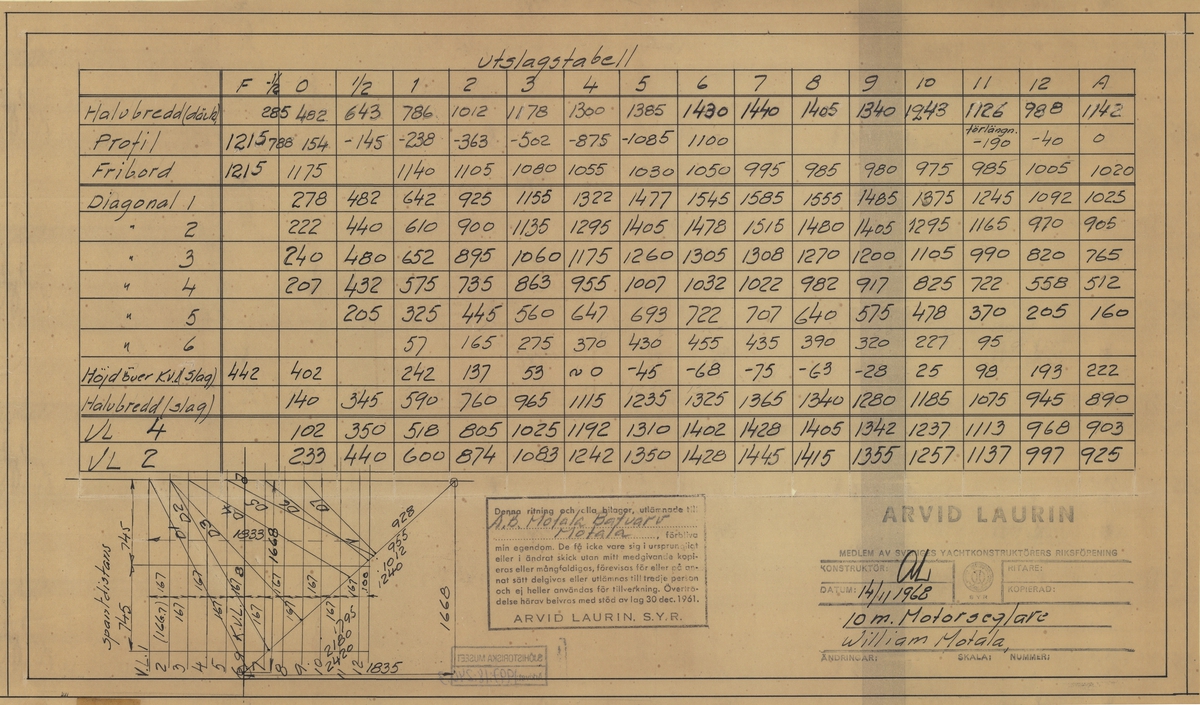 utslagstabell
F -½ 0 1/2 1 2 3 4 5 6 7 8 9 10 11 12 A
Halvbredd (däck) 285 482 643 786 1012 1178 1300 1385 1430 1440 1405 1340 1243 1126 988 1142
Profil 1215 788 154 -145 -238 -363 -502 -875 -1085 1100 förlängn. -190 -40 0
Fribord 1215 1175 1140 1105 1080 1055 1030 1050 995 985 980 975 985 1005 1020
Diagonal 1 278 482 642 925 1155 1322 1477 1545 1585 1555 1485 1375 1245 1092 1025
" 2 222 440 610 900 1135 1295 1405 1478 1515 1480 1405 1295 1165 970 905
" 3 240 480 652 895 1060 1175 1260 1305 1308 1270 1200 1105 990 820 765
" 4 207 432 575 735 863 955 1007 1032 1022 982 917 825 722 558 512
" 5 205 325 445 560 647 693 722 707 640 575 478 370 205 160
" 6 57 165 275 370 430 455 435 390 320 227 95
Höjd över K.V.L (slag) 442 402 242 137 53 ~0 -45 -68 -75 -63 -28 25 98 193 222
Halvbredd (slag) 140 345 590 760 965 1115 1235 1325 1365 1340 1280 1185 1075 945 890
VL 4 102 350 518 805 1025 1192 1310 1402 1428 1405 1342 1237 1113 968 903
VL 2 233 440 600 874 1083 1242 1350 1428 1445 1415 1355 1257 1137 997 925
spantdistans 745 745
D1 D2 D3 D5 D2 D1
1833 1668
928
955
1012
1240
167 167 167 167 167 167 167 167 100
1668
795
2180
2420
1835
V.L.1 2 3 4 5 K.V.L. 7 8 9 10 11 12
Denna ritning och ella bilagor, utlämnade till
A.B. Motala Båtvarv
Motala, förbliva
min egendom. De få icke vare sig i ursprungligt
eller i ändrat skick utan mitt medgivande kopi-
eras eller mångfaldigas, förevisas för eller på an-
nat sätt delgivas eller utlämnas till tredje person
och ej heller användas för tillverkning. Övertra-
delse härav beivras med stöd av lag 30 dec. 1961.
ARVID LAURIN. S.Y.R.
SJÖHISTORISKA MUSEET
ARVID LAURIN
MEDLEM AV SVERIGES YACHTKONSTRUKTÖRERS RIKSFÖRENING
KONSTRUKTÖR: AL RITARE:
DATUM: 14/11 1968 KOPIERAD:
10 m. Motorseglare
William Motala,
ÄNDRINGAR: SKALA: NUMMER: